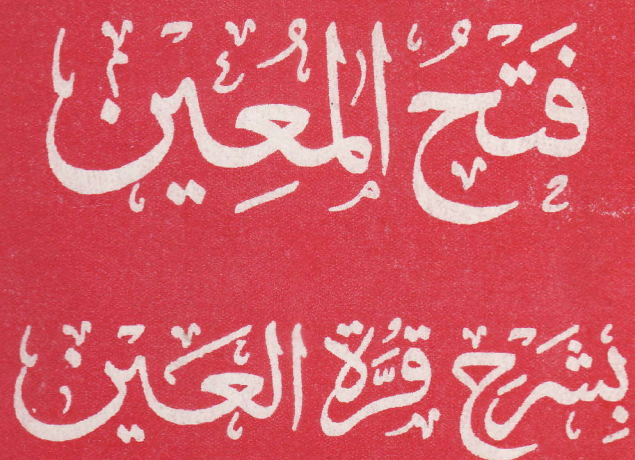 فَتْحُ الْمُعِين
بِشَرْحِ قُرَّةِ الْعَيْن